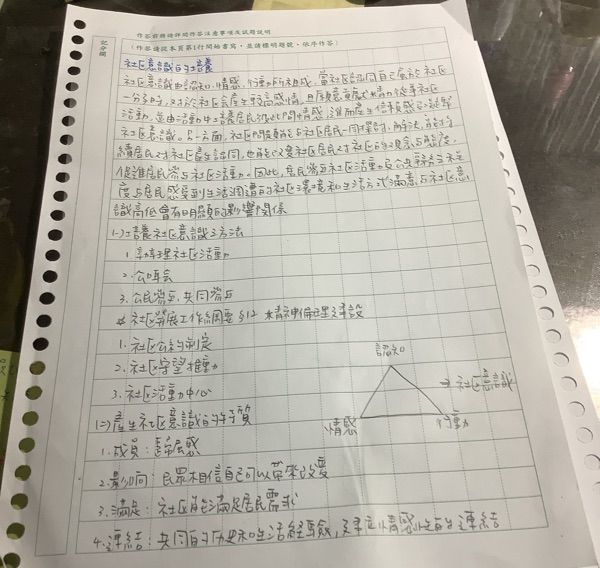 作答前務請詳閱作答注意事項及試題說明
記分欄
(作答請從本頁第1行開始書寫，並請標明題號，依序作答)
社區意識的培養
社區意識由認知、情感、行動所組成，當社區認同自己屬於社區
一分子時，對於社區會產生較高感情，且願意貢獻
活動，並由活動中培養居民彼此間情感，進而產生信賴感
社區意識。另一方面，社區問題能與社區居民一同探討
續居民對社區產生認同，也能改變社區居民對社區的觀念與態度，
促進居民參與社區活動。因此，居民參與社區活動及公共事務
度與居民感受到生活周遭的社區環境和生活方式滿意與社區意
識高低會有明顯的影響關係
(一)培養社區意識之方法
1. 辦理社區活動
2. 公聽會
3. 公民參與、共同參與
社區發展工作綱要 §12 精神倫理建設
1. 社區公約制定
2. 社區守望推動
3. 社區活動中心
認知
⇒ 社區意識
情感
行動
(二)產生社區意識的特質
1. 成員：歸屬感
2. 影響：民眾相信自己可以帶來改變
3. 滿足：社區能滿足居民需求
4. 連結：共同的歷史和生活經驗，建立情感性的連結